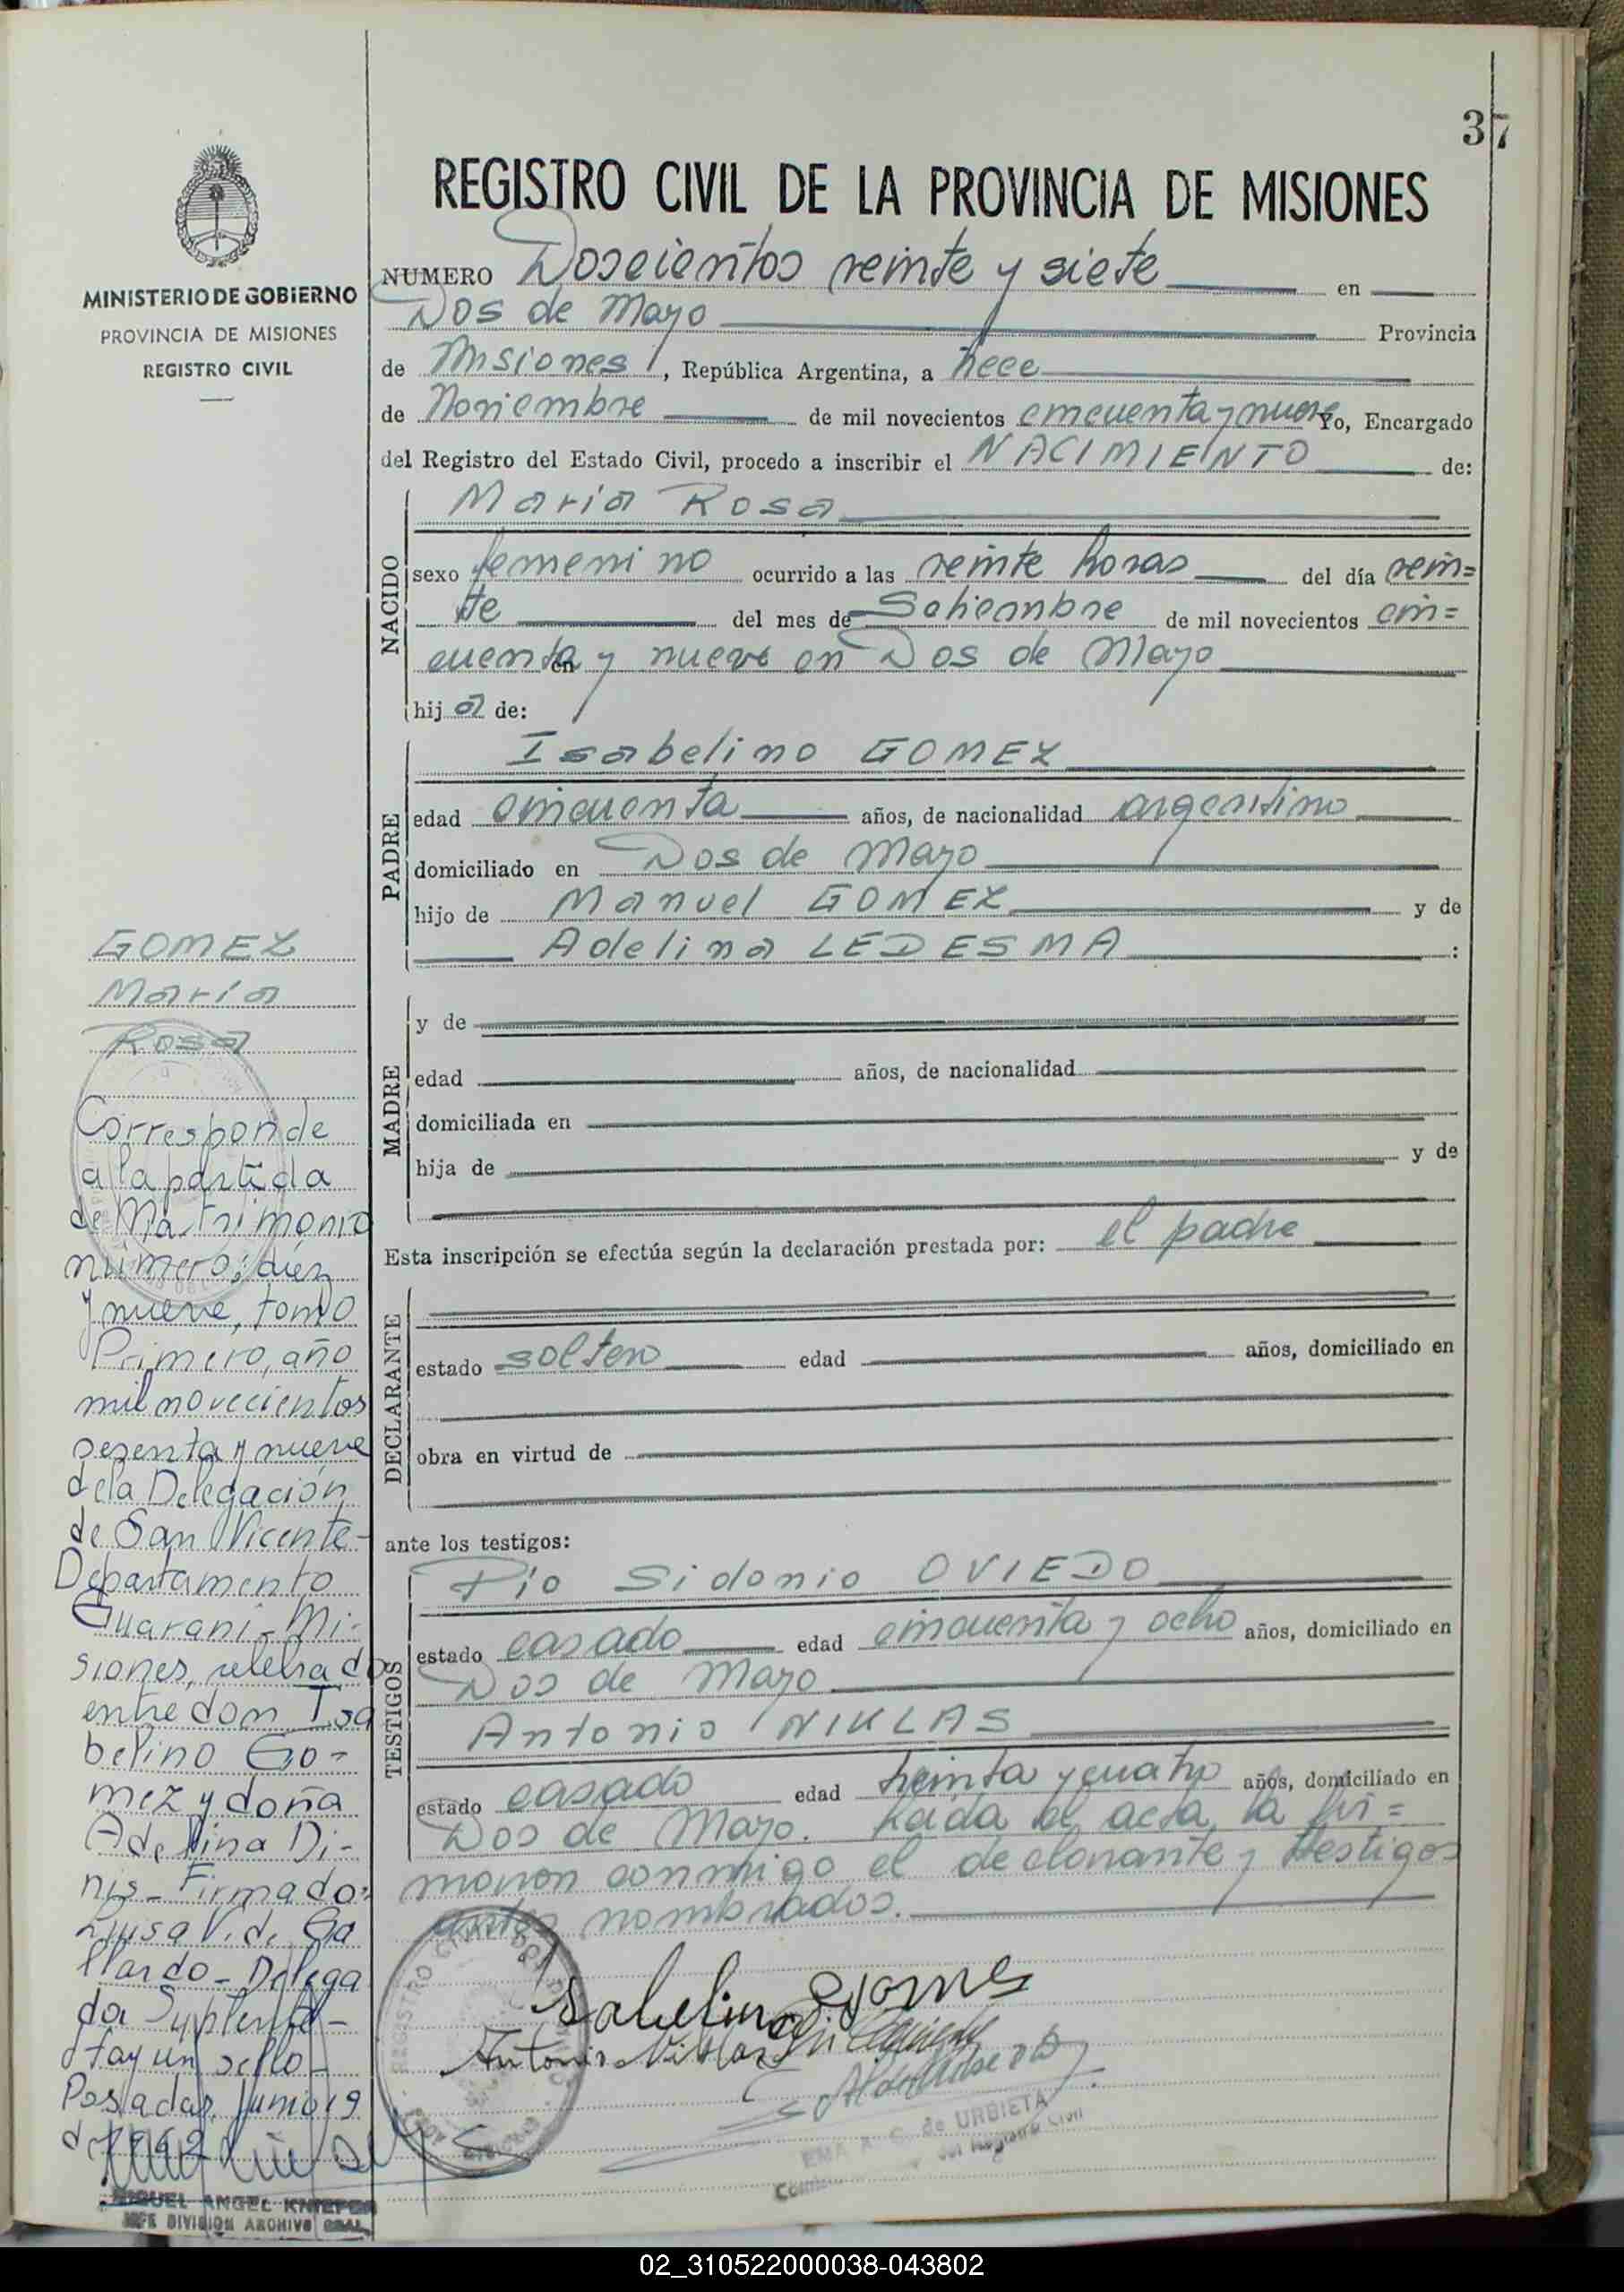 37
REGISTRO CIVIL DE LA PROVINCIA DE MISIONES
MINISTERIO DE GOBIERNO
PROVINCIA DE MISIONES
REGISTRO CIVIL
NUMERO Doscientos veinte y siete en
Dos de Mayo Provincia
de Misiones, República Argentina, a trece
de Noviembre de mil novecientos cincuenta y nueve Yo, Encargado
del Registro del Estado Civil, procedo a inscribir el NACIMIENTO de:
NACIDO
María Rosa
sexo femenino ocurrido a las veinte horas del día vein=
te del mes de Setiembre de mil novecientos cin=
cuenta y nueve en Dos de Mayo
en
hija de:
PADRE
Isabelino GOMEZ
edad cincuenta años, de nacionalidad argentino
domiciliado en Dos de Mayo
hijo de Manuel GOMEZ y de
Adelina LEDESMA :
MADRE
y de
edad años, de nacionalidad
domiciliada en
hija de y de
Esta inscripción se efectúa según la declaración prestada por: el padre
DECLARANTE
estado soltero edad años, domiciliado en
obra en virtud de
ante los testigos:
TESTIGOS
Pío Sidonio OVIEDO
estado casado edad cincuenta y ocho años, domiciliado en
Dos de Mayo
Antonio NIKLAS
estado casado edad treinta y cuatro años, domiciliado en
Dos de Mayo. Leída el acta, la fir=
maron conmigo el declarante y testigos
antes nombrados.
Isabelino Gomes
Antonio Niklas
EMA A. C. de URBIETA
del Registro Civil
GOMEZ
María
Rosa
Corresponde
a la partida
de Matrimonio
número: diez
y nueve, tomo
Primero, año
mil novecientos
sesenta y nueve
de la Delegación
de San Vicente-
Departamento
Guaraní-Mi-
siones, celebrado
entre don Isa
belino Go-
mez y doña
Adelina Di-
nis- Firmado:
Luisa V. de Ga
llardo- Delega
da Suplente-
Hay un sello-
Posadas, Junio 19
MIGUEL ANGEL
JEFE DIVISION ARCHIVO GRAL.
02_310522000038-043802